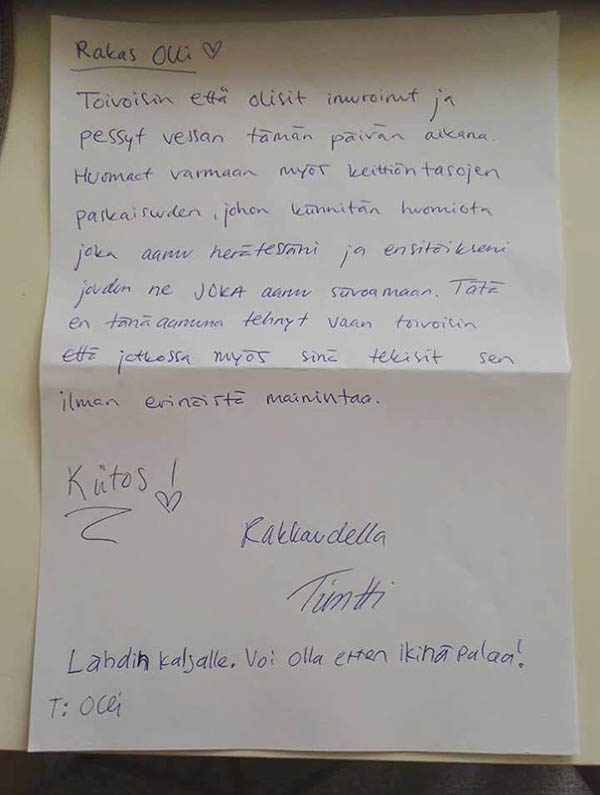 Rakas Olli ♡
Toivoisin että olisit imuroinut ja
pessyt vessan tämän päivän aikana.
Huomaat varmaan myös keittiön tasojen
paskaisuuden, johon kiinnitän huomiota
joka aamu herätessäni ja ensitöikseni
joudun ne JOKA aamu siivoamaan. Tätä
en tänä aamuna tehnyt vaan toivoisin
että jatkossa myös sinä tekisit sen
ilman erinäistä mainintaa.
Kiitos! ♡
Rakkaudella
Timtti
Lähdin kaljalle. Voi olla etten ikinä palaa!
T: Olli